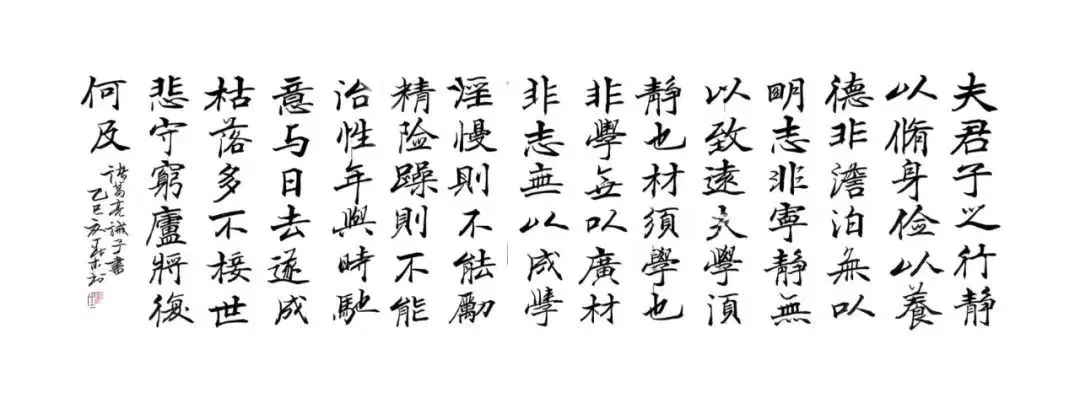 夫君子之行静
以脩身俭以養
德非澹泊無以
明志非寧静無
以致遠夫學須
静也材須學也
非學無以廣材
非志無以成學
淫慢則不能勵
精险躁則不能
治性年與時馳
意与日去遂成
枯落多不接世
悲守窮廬將復
何及
诸葛亮诫子書
乙巳